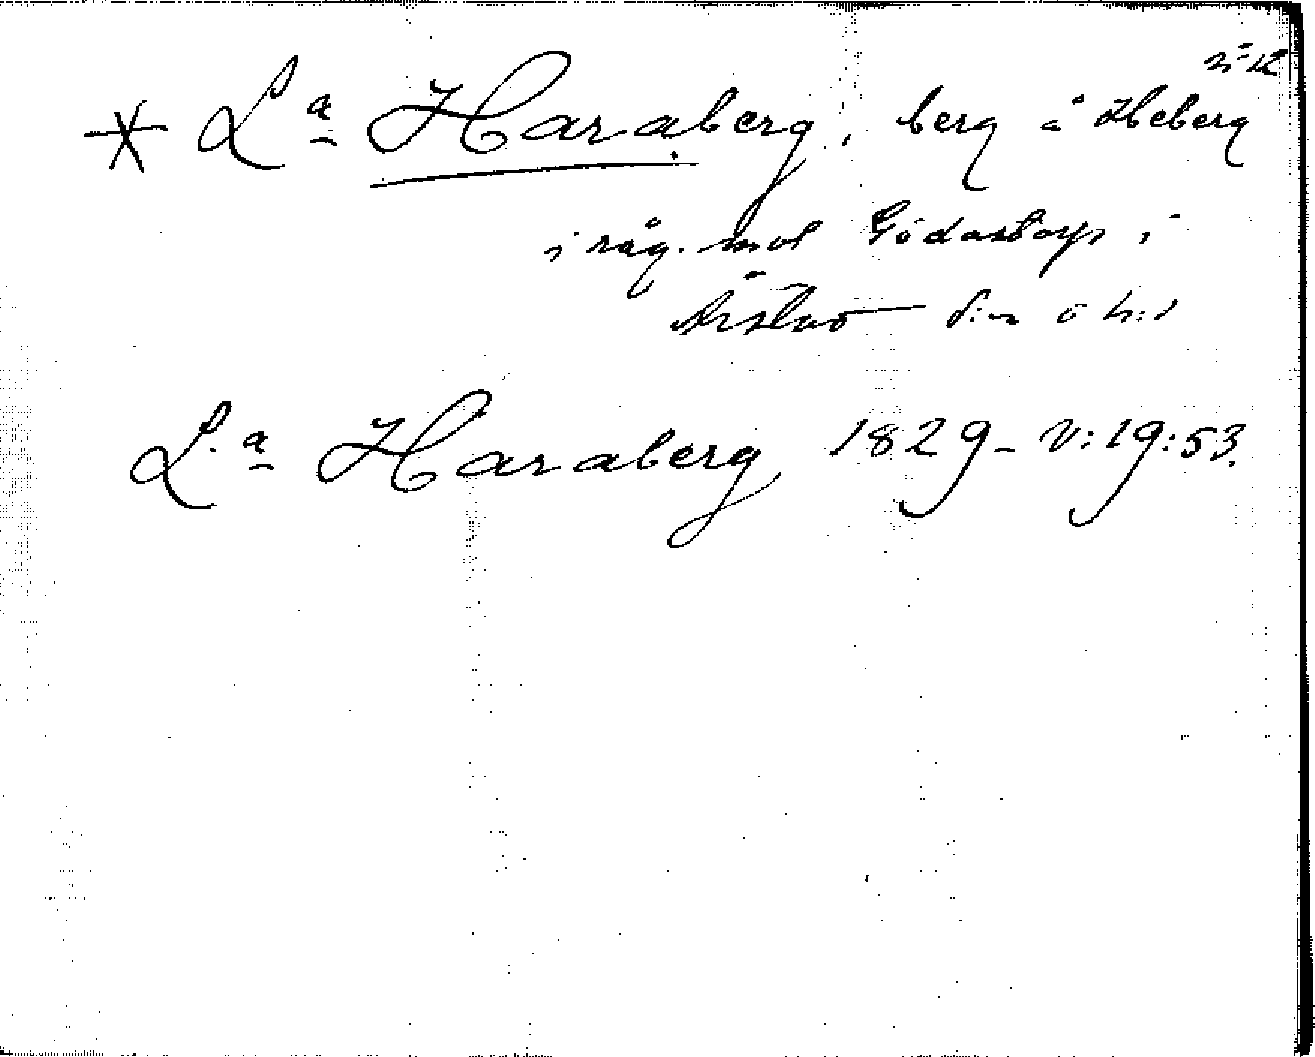 * L.a Haraberg, berg å Heberg
i råg. mot Gödastorp i
Årstad
L.a Haraberg 1829 - V:19:53.